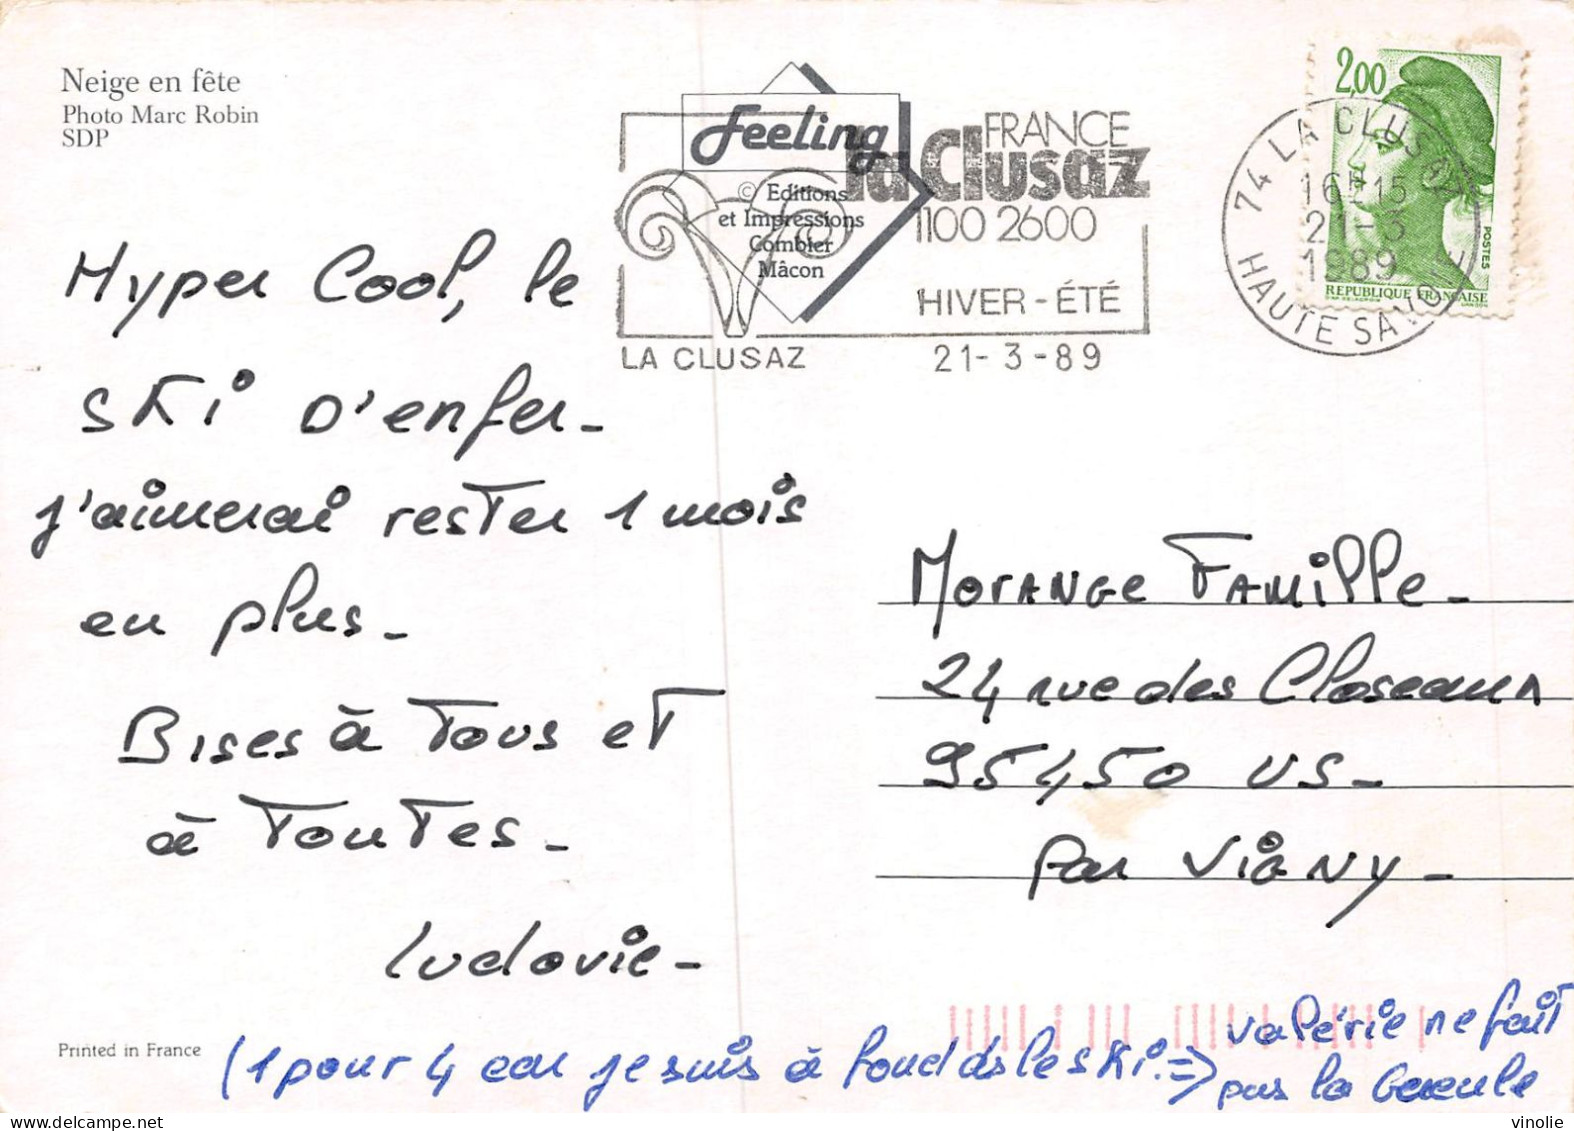 Neige en fête
Photo Marc Robin
SDP
Feeling
© Editions
et Impressions
Combier
Mâcon
FRANCE
la Clusaz
1100 2600
HIVER - ÉTÉ
LA CLUSAZ
21-3-89
74 LA CLUSAZ
16H15
21-3
1989
HAUTE SAVOIE
2,00
POSTES
REPUBLIQUE FRANÇAISE
Hyper Cool, le
ski d'enfer_
j'aimerai rester 1 mois
en plus_
Bises à Tous et
à Toutes_
Ludovic_
Morange Famille_
24 rue des Closeaux
95450 US_
par Vigny_
Printed in France
(1 pour 4 car je suis à fond ds le ski. => Valérie ne fait
pas la Gueule
vinolie